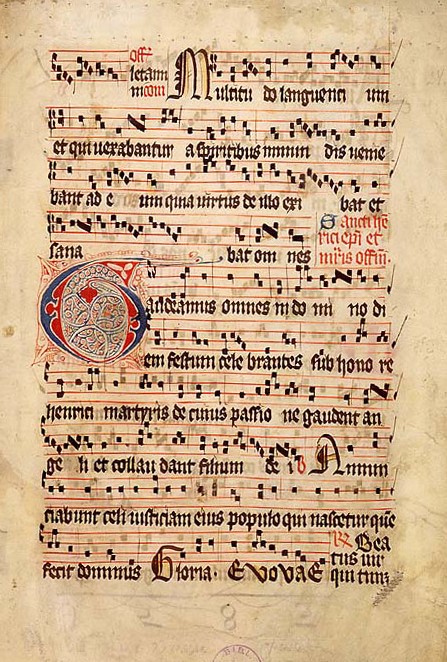 Off
letam
in com Multitu do languenti um
et qui uexabantur a spiritibus inmun dis uenie
bant ad e um quia uirtus de illo exi bat et
sana bat om nes Sancti he
rici epi et
mris offm
Gaudeamus omnes in do mi no di
em festum cele brantes sub hono re
henrici martyris de cuius passio ne gaudent an
ge li et collau dant filium de i V Annun
ciabunt celi iusticiam eius populo qui nascetur que
fecit dominus Gloria. EVOVAE R Bea
tus uir
qui tim
2 8 2
BIBL